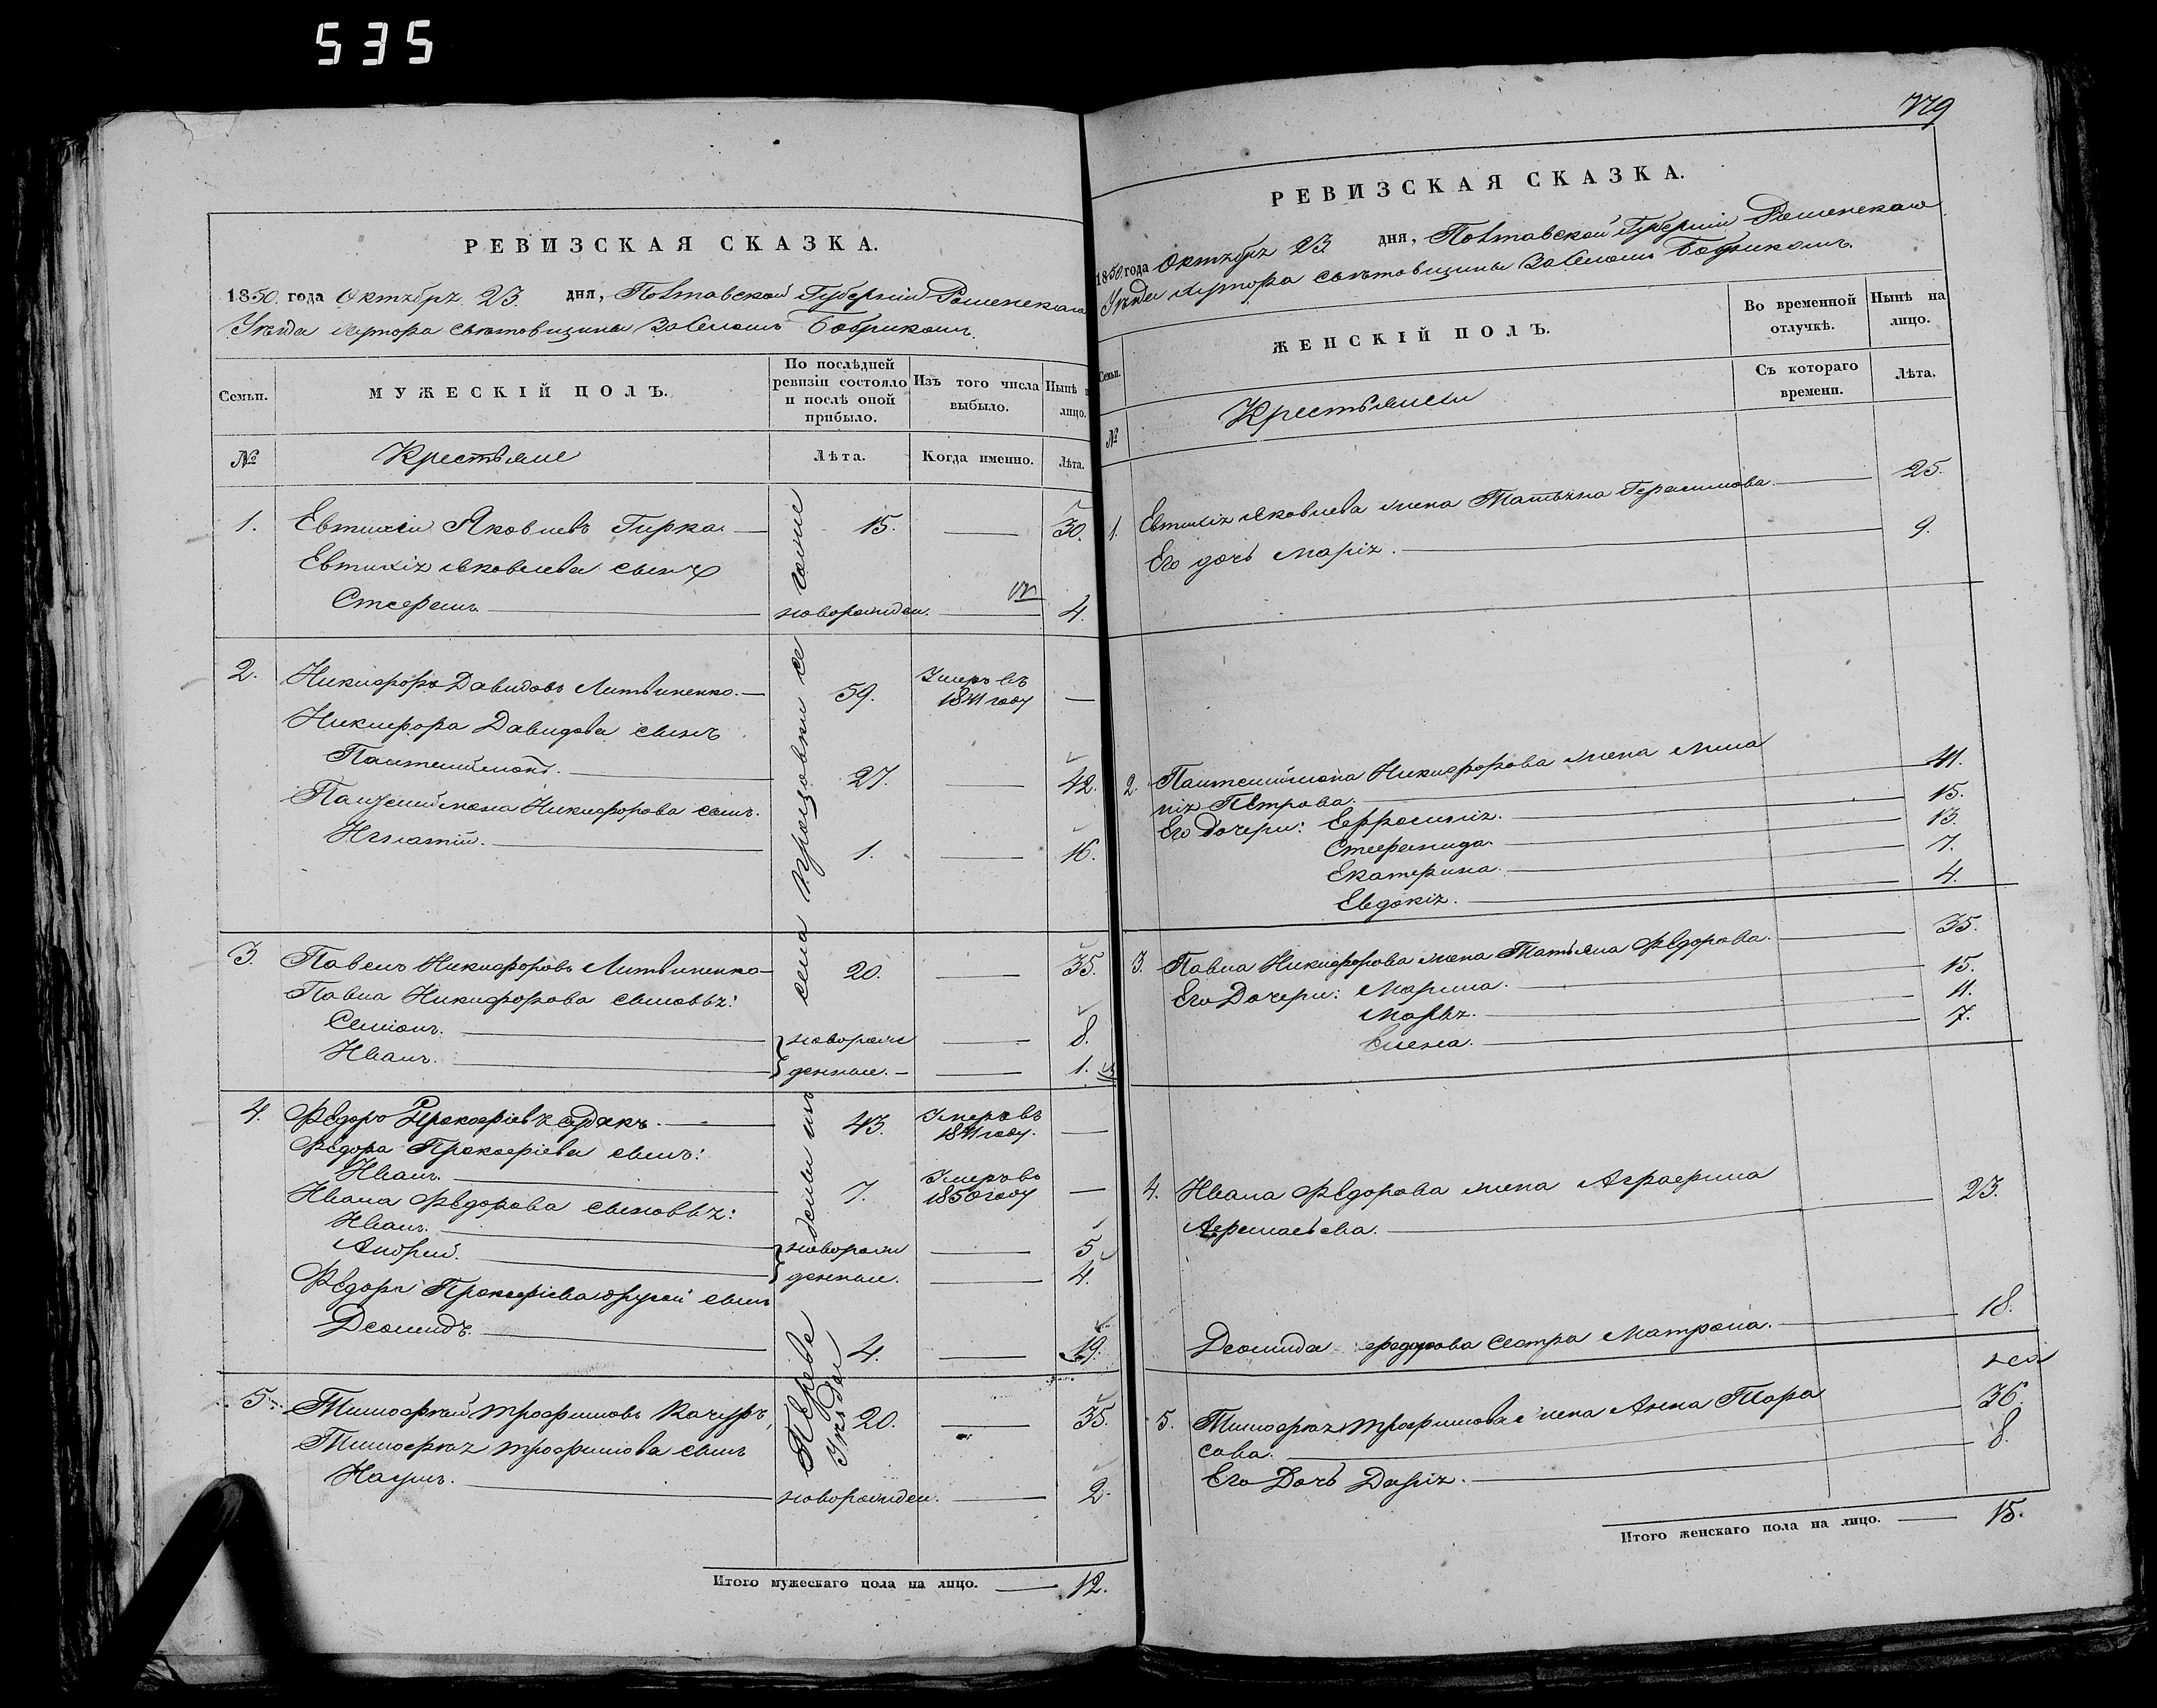 535
РЕВИЗСКАЯ СКАЗКА.
1850. года Октября 23. дня, Полтавской Губернии
Уезда Хутора за Селомъ Бобрикомъ.
Семьи.
МУЖЕСКІЙ ПОЛЪ.
По послѣдней ревизіи состояло и послѣ оной прибыло.
Изъ того числа выбыло.
Нынѣ
лицо.
№
Крестьяне
Лѣта.
Когда именно.
Лѣта.
1. Евтихій Яковлевъ Гирка. 15. 30.
Евтихія Яковлева сынъ
Стефанъ. новорожден. 4.
2. Никифоръ Давидовъ Литвиненко. 59. Умеръ въ 1841 году
Никифора Давидова сынъ
Пантелиймонъ. 27. 42.
Пантелиймона Никифорова сынъ.
Игнатій. 1. 16.
3. Павелъ Никифоровъ Литвиненко 20. 35.
Павла Никифорова сыновья:
Семіонъ. новорож 8.
Иванъ. денные. 1.
4. Федоръ Прокофіевъ 43. Умеръ въ 1841 году.
Федора Прокофіева сынъ:
Иванъ. 7. Умеръ въ 1850 году
Ивана Федорова сыновья:
Иванъ. новорож 5.
Андрей. денные. 4.
Федора Прокофіева другой сынъ
Деомидъ. 4. 19.
5. Тимофѣй Трофимовъ Качуръ, 20. 35.
Тимофея Трофимова сынъ
Наумъ. новорожден. 2.
Итого мужескаго пола на лицо. 12.
779
РЕВИЗСКАЯ СКАЗКА.
1850. года Октября 23 дня, Полтавской Губерніи
Уезда Хутора за Селомъ Бобрикомъ.
Семьи.
ЖЕНСКІЙ ПОЛЪ.
Во временной отлучкѣ.
Нынѣ на лицо.
№
Крестьянки
Съ котораго времени.
Лѣта.
1. Евтихія Яковлева жена Татьяна Герасимова. 25.
Его дочь Марія. 9.
2. Пантелиймона Никифорова жена
Петрова. 41.
Его Дочери: Евфросинія. 15.
Стефанида. 13.
Екатерина. 7.
Евдокія. 4.
3. Павла Никифорова жена Татьяна Федорова. 35.
Его Дочери: Марина. 15.
Марья. 11.
Елена. 7.
4. Ивана Федорова жена Аграфина
23.
Деомида Федорова Сестра Матрона. 18.
5. Тимофея Трофимова жена Анна Тара
сова. 36.
Его Дочь Дарія. 8.
Итого женскаго пола на лицо. 15.